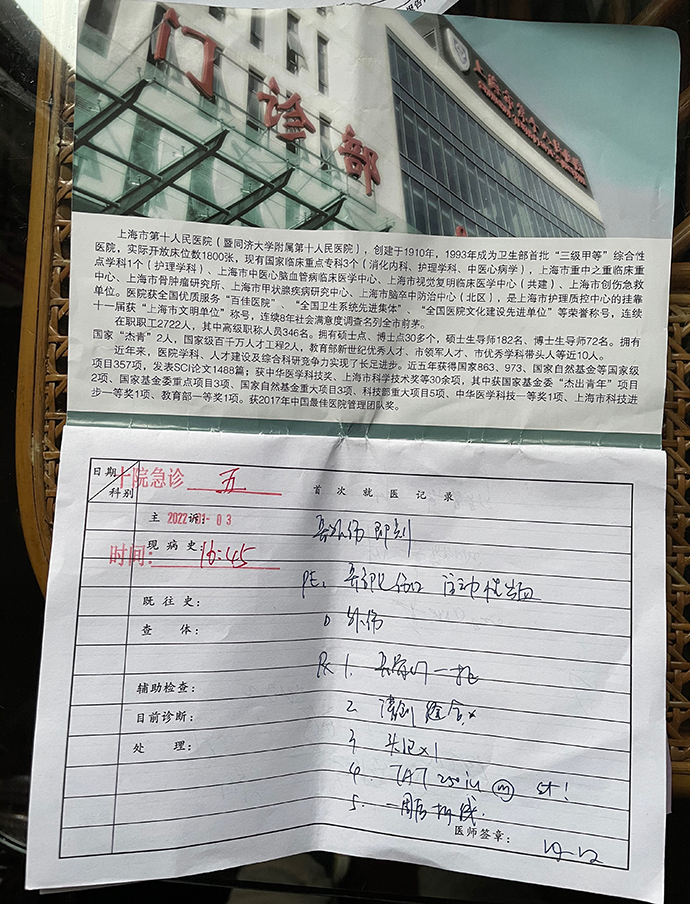 门诊部
上海市第十人民医院
上海市第十人民医院（暨同济大学附属第十人民医院），创建于1910年，1993年成为卫生部首批“三级甲等”综合性
医院，实际开放床位数1800张，现有国家临床重点专科3个（消化内科、护理学科、中医心病学），上海市重中之重临床重
点学科1个（护理学科）、上海市中医心脑血管病临床医学中心、上海市视觉复明临床医学中心（共建）、上海市创伤急救
中心、上海市骨肿瘤研究所、上海市甲状腺疾病研究中心、上海市脑卒中防治中心（北区），是上海市护理质控中心的挂靠
单位。医院获全国优质服务“百佳医院”、“全国卫生系统先进集体”、“全国医院文化建设先进单位”等荣誉称号，连续
十一届获“上海市文明单位”称号，连续8年社会满意度调查名列全市前茅。
在职职工2722人，其中高级职称人员346名。拥有硕士点、博士点30多个，硕士生导师182名、博士生导师72名。拥有
国家“杰青”2人，国家级百千万人才工程2人，教育部新世纪优秀人才、市领军人才、市优秀学科带头人等近10人。
近年来，医院学科、人才建设及综合科研竞争力实现了长足进步。近五年获得国家863、973、国家自然基金等国家级
项目357项，发表SCI论文1488篇；获中华医学科技奖、上海市科学技术奖等30余项，其中获国家基金委“杰出青年”项目
2项、国家基金委重点项目3项、国家自然基金重大项目3项、科技部重大项目5项、中华医学科技一等奖1项、上海市科技进
步一等奖1项、教育部一等奖1项。获2017年中国最佳医院管理团队奖。
日期 十院急诊 五 首次就医记录
科别
主诉： 2022-01-03 外伤即刻
现病史：
时间： 16:45
PE: 伤口
既往史：
查体： 外伤
Rx 1.
辅助检查： 2. 清创缝合
目前诊断： 3. x1
处理： 4. TAT 250iu im st!
5. 一周后拆线.
医师签章：